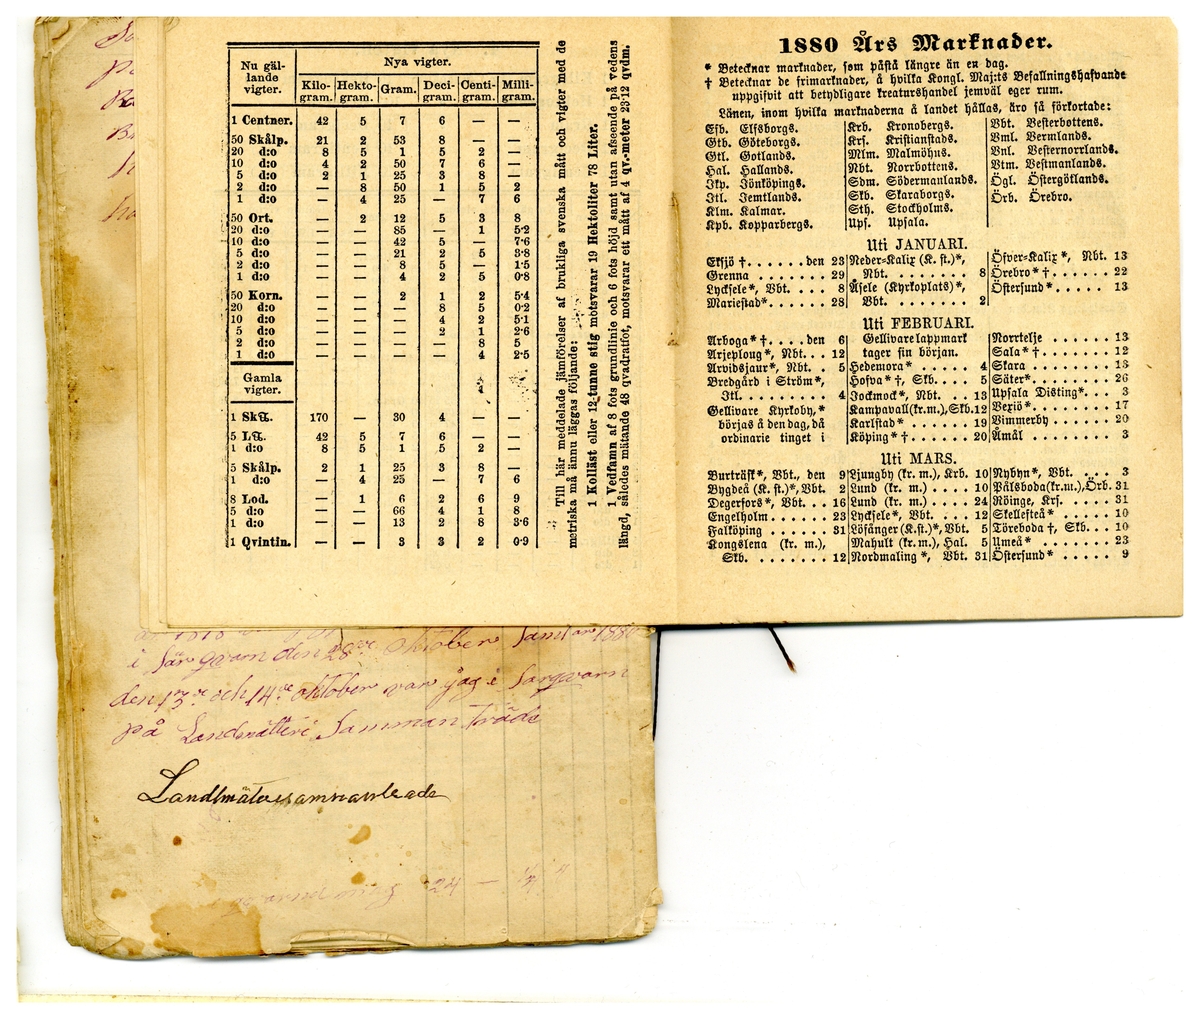 Nu gäl-
lande
vigter.
Nya vigter.
Kilo-gram. Hekto-gram. Gram. Deci-gram. Centi-gram. Milli-gram.
1 Centner. 42 5 7 6 — —
50 Skålp. 21 2 53 8 — —
20 d:o 8 5 1 5 2 —
10 d:o 4 2 50 7 6 —
5 d:o 2 1 25 3 8 —
2 d:o — 8 50 1 5 2
1 d:o — 4 25 — 7 6
50 Ort. — 2 12 5 3 8
20 d:o — — 85 — 1 5·2
10 d:o — — 42 5 — 7·6
5 d:o — — 21 2 5 3·8
2 d:o — — 8 5 — 1·5
1 d:o — — 4 2 5 0·8
50 Korn. — — 2 1 2 5·4
20 d:o — — — 8 5 0·2
10 d:o — — — 4 2 5·1
5 d:o — — — 2 1 2·6
2 d:o — — — — 8 5
1 d:o — — — — 4 2·5
Gamla
vigter.
1 Sk℔. 170 — 30 4 — —
5 L℔. 42 5 7 6 — —
1 d:o 8 5 1 5 2 —
5 Skålp. 2 1 25 3 8 —
1 d:o — 4 25 — 7 6
8 Lod. — 1 6 2 6 9
5 d:o — — 66 4 1 8
1 d:o — — 13 2 8 3·6
1 Qvintin. — — 3 3 2 0·9
Till här meddelade jämförelser af brukliga svenska mått och vigter med de
metriska må ännu läggas följande:
1 Kolläst eller 12 tunne stig motsvarar 19 Hektoliter 78 Liter.
1 Vedfamn af 8 fots grundlinie och 6 fots höjd samt utan afseende på vedens
längd, således mätande 48 qvadratfot, motsvarar ett mått af 4 qv.-meter 23·12 qvdm.
1880 Års Marknader.
* Betecknar marknader, som påstå längre än en dag.
† Betecknar de frimarknader, å hvilka Kongl. Majts Befallningshafvande
uppgifvit att betydligare kreaturshandel jemväl eger rum.
Länen, inom hvilka marknaderna å landet hållas, äro så förkortade:
Efb. Elfsborgs.
Gtb. Göteborgs.
Gtl. Gotlands.
Hal. Hallands.
Jkp. Jönköpings.
Jtl. Jemtlands.
Klm. Kalmar.
Kpb. Kopparbergs.
Krb. Kronobergs.
Krs. Kristianstads.
Mlm. Malmöhus.
Nbt. Norrbottens.
Sdm. Södermanlands.
Skb. Skaraborgs.
Sth. Stockholms.
Ups. Upsala.
Vbt. Vesterbottens.
Vml. Vermlands.
Vnl. Vesternorrlands.
Vtm. Vestmanlands.
Ögl. Östergötlands.
Örb. Örebro.
Uti JANUARI.
Eksjö † . . . . . . den 23
Grenna . . . . . . . 29
Lycksele*, Vbt. . . . 8
Mariestad* . . . . . . 28
Neder-Kalix (K. st.)*,
Nbt. . . . . . . . . 8
Åsele (Kyrkoplats)*,
Vbt. . . . . . . . . 2
Öfver-Kalix*, Nbt. 13
Örebro*† . . . . . . 22
Östersund* . . . . . 13
Uti FEBRUARI.
Arboga*† . . . . den 6
Arjeploug*, Nbt. . . 12
Arvidsjaur*, Nbt. . 5
Bredgård i Ström*,
Jtl. . . . . . . . . . 4
Gellivare Kyrkoby,*
börjas å den dag, då
ordinarie tinget i
Gellivare lappmark
tager sin början.
Hedemora* . . . . . 4
Hofva*†, Skb. . . . . 5
Jockmock*, Nbt. . . 13
Kampavall (kr.m.), Skb. 12
Karlstad* . . . . . . 19
Köping*† . . . . . . 20
Norrtelje . . . . . . 13
Sala*† . . . . . . . 12
Skara . . . . . . . . 13
Säter* . . . . . . . 26
Upsala Disting* . . . 3
Vexiö* . . . . . . . 17
Vimmerby . . . . . . 20
Åmål . . . . . . . . 3
Uti MARS.
Burträsk*, Vbt., den 9
Bygdeå (K. st.)*, Vbt. 2
Degerfors*, Vbt. . . 16
Engelholm . . . . . . 23
Falköping . . . . . . 31
Kongslena (kr. m.),
Skb. . . . . . . . . 12
Ljungby (kr. m.), Krb. 10
Lund (kr. m.) . . . . 10
Lund (kr. m.) . . . . 24
Lycksele*, Vbt. . . 12
Lösånger (K.st.)*, Vbt. 5
Mahult (kr. m.), Hal. 5
Nordmaling*, Vbt. 31
Nybyn*, Vbt. . . . 3
Pålsboda (kr.m.), Örb. 31
Röinge, Krs. . . . . 31
Skellefteå* . . . . . 10
Töreboda †, Skb. . . 10
Umeå* . . . . . . . 23
Östersund* . . . . . 9
i Särqvarn den 28 de oktober Samt år 1880
den 13 de och 14 de oktober var jag i Särqvarn
på Landmätteri Samman Träde
Landtmätaresamnanbrade